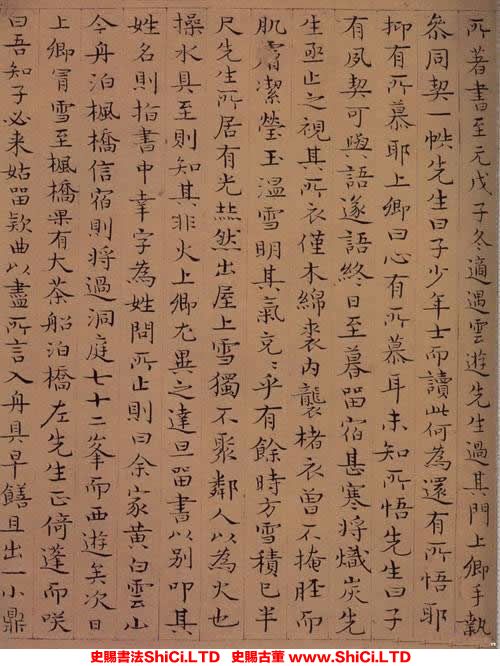 所著書至元戊子冬適遇雲遊先生過其門上卿手執
叅同契一帙先生曰子少年士而讀此何為還有所悟耶
抑有所慕耶上卿曰心有所慕耳未知所悟先生曰子
有夙契可與語遂語終日至暮留宿甚寒將熾炭先
生亟止之視其所衣僅木綿裘內襲楮衣曾不掩脛而
肌膚潔瑩玉溫雪明其氣充充乎有餘時方雪積已半
尺先生所居有光燕然出屋上雪獨不聚鄰人以為火也
操水具至則知其非火上卿尤異之達旦留書以別叩其
姓名則指書中幸字為姓問所止則曰余家黃白雲山
今舟泊楓橋信宿則將過洞庭七十二峯而西遊矣次日
上卿冐雪至楓橋果有大茶船泊橋左先生正倚蓬而咲
曰吾知子必来姑留欵曲以盡所言入舟具早饍且出一小鼎
史賜書法ShiCi.LTD 史賜古董 www.ShiCi.LTD